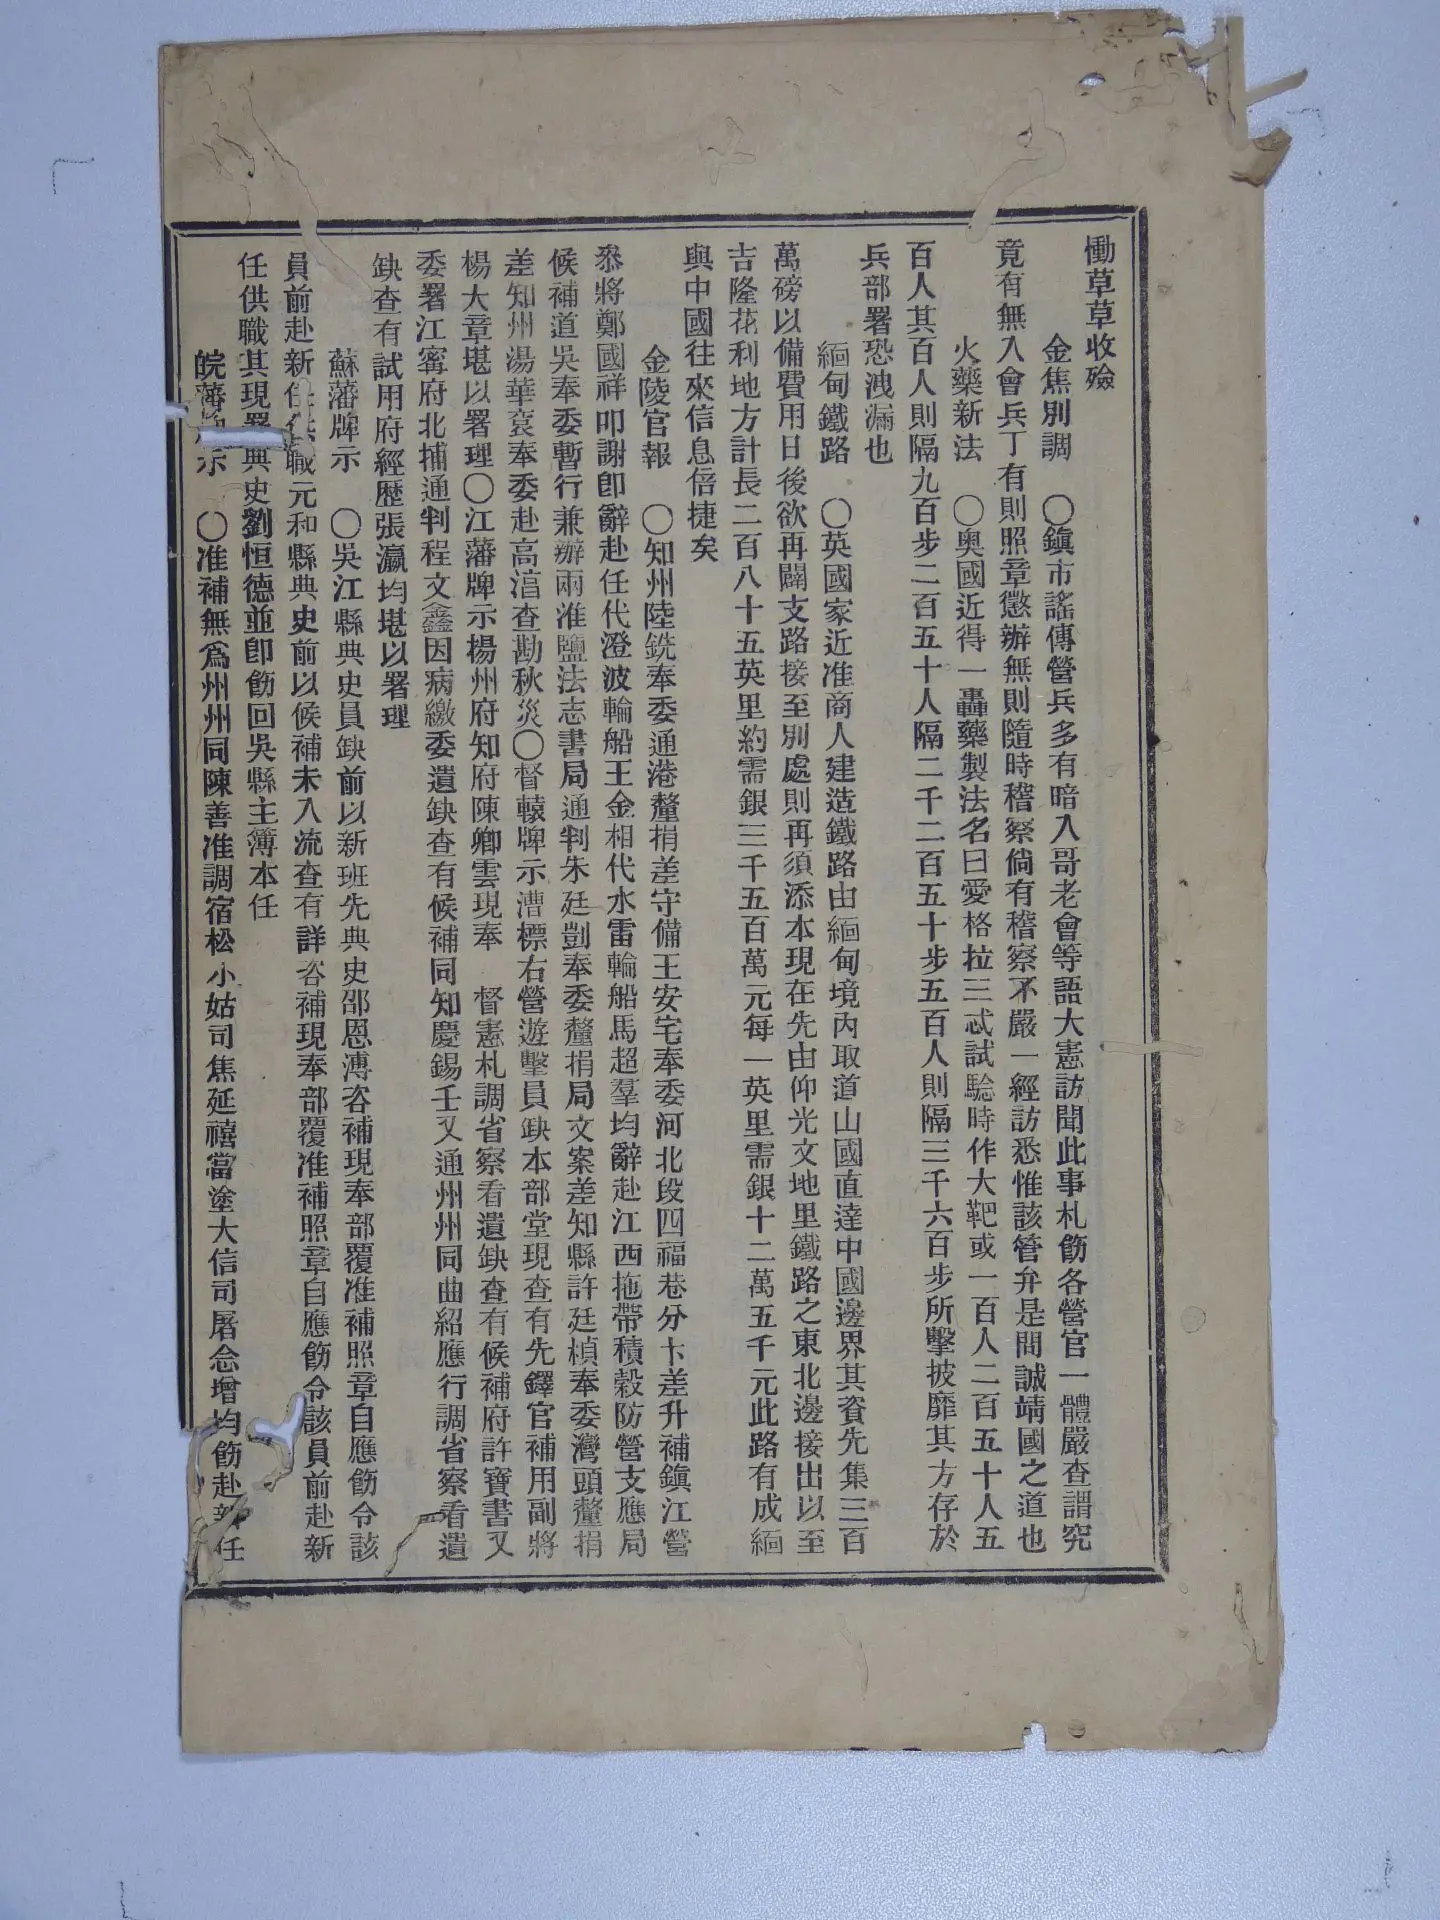 慟草草收殮
金焦別調　○鎭市謠傳營兵多有暗入哥老會等語大憲訪聞此事札飭各營官一體嚴查謂究
竟有無入會兵丁有則照章懲辦無則隨時稽察倘有稽察不嚴一經訪悉惟該管弁是問誠靖國之道也
火藥新法　○奧國近得一轟藥製法名曰愛格拉三忒試驗時作大靶或一百人二百五十人五
百人其百人則隔九百步二百五十人隔二千二百五十步五百人則隔三千六百步所擊披靡其方存於
兵部署恐洩漏也
緬甸鐵路　○英國家近准商人建造鐵路由緬甸境內取道山國直達中國邊界其資先集三百
萬磅以備費用日後欲再闢支路接至別處則再須添本現在先由仰光文地里鐵路之東北邊接出以至
吉隆花利地方計長二百八十五英里約需銀三千五百萬元每一英里需銀十二萬五千元此路有成緬
與中國往來信息倍捷矣
金陵官報　○知州陸銑奉委通港釐捐差守備王安宅奉委河北段四福巷分卞差升補鎭江營
叅將鄭國祥叩謝卽辭赴任代澄波輪船王金相代水雷輪船馬超羣均辭赴江西拖帶積穀防營支應局
候補道吳奉委暫行兼辦兩淮鹽法志書局通判朱廷剴奉委釐捐局文案差知縣許廷楨奉委灣頭釐捐
差知州湯華袞奉委赴高湻查勘秋災○督轅牌示漕標右營遊擊員缺本部堂現查有先鐸官補用副將
楊大章堪以署理○江藩牌示揚州府知府陳卿雲現奉　督憲札調省察看遺缺查有候補府許寶書又
委署江寗府北捕通判程文鑫因病繳委遺缺查有候補同知慶錫壬又通州州同曲紹應行調省察看遺
缺查有試用府經歷張瀛均堪以署理
蘇藩牌示　○吳江縣典史員缺前以新班先典史邵恩溥咨補現奉部覆准補照章自應飭令該
員前赴新任供職元和縣典史前以候補未入流查有詳咨補現奉部覆准補照章自應飭令該員前赴新
任供職其現署典史劉恒德並卽飭回吳縣主簿本任
皖藩牌示　○准補無爲州州同陳善准調宿松小姑司焦延禧當塗大信司屠念增均飭赴新任